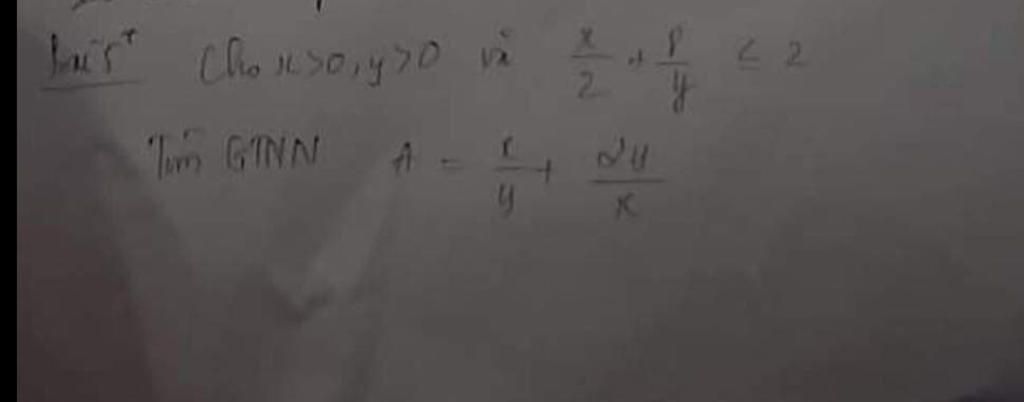 Bài 5* Cho x>0, y>0 và x/2 + 8/y ≤ 2
Tìm GTNN A = x/y + 2y/x